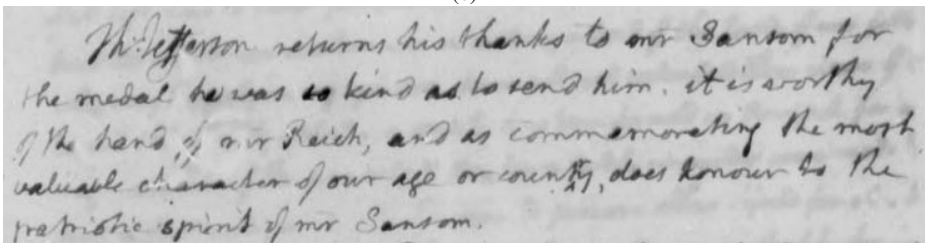 Th: Jefferson returns his thanks to mr Sansom for
the medal he was so kind as to send him. it is worthy
of the hand of mr Reich, and as commemorating the most
valuable character of our age or country, does honour to the
patriotic spirit of mr Sansom.